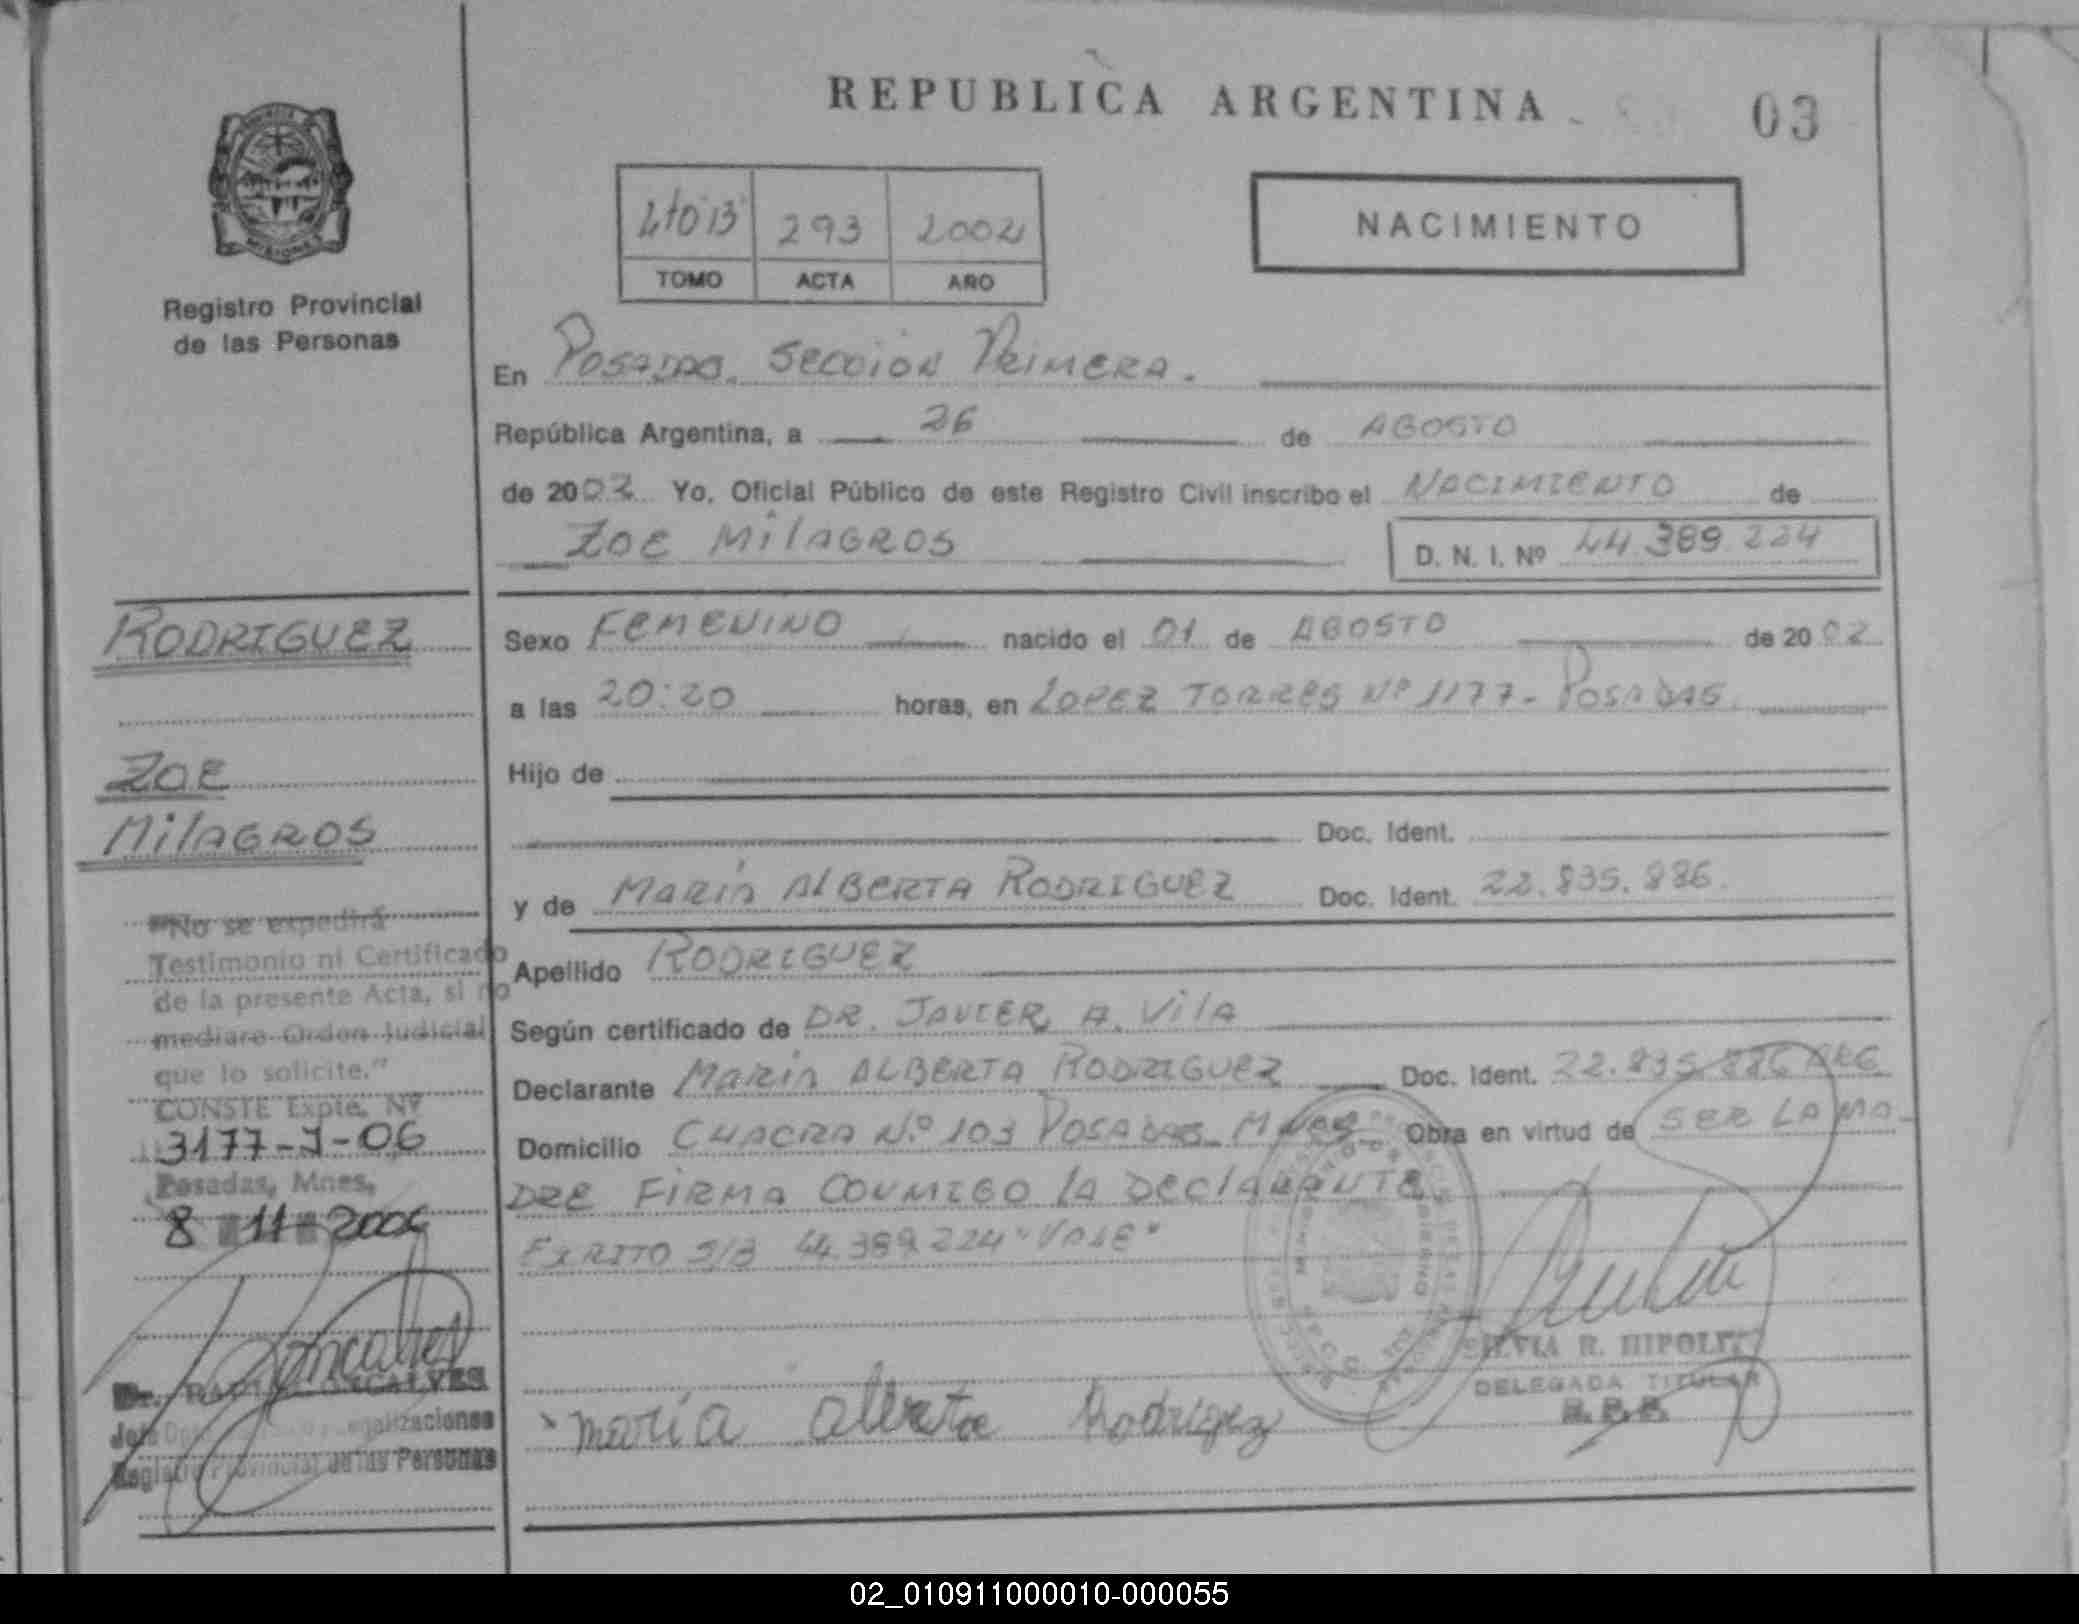 REPUBLICA ARGENTINA
03
293 2002
TOMO ACTA AÑO
NACIMIENTO
Registro Provincial
de las Personas
En POSADAS. SECCION PRIMERA.
República Argentina, a 26 de AGOSTO
de 2002 Yo, Oficial Público de este Registro Civil inscribo el NACIMIENTO de
ZOE MILAGROS D. N. I. Nº 44.389.224
RODRIGUEZ
ZOE
MILAGROS
Sexo FEMENINO nacido el 01 de AGOSTO de 2002
a las 20:20 horas, en LOPEZ TORRES Nº 1177- POSADAS.
Hijo de
Doc. Ident.
y de MARIA ALBERTA RODRIGUEZ Doc. Ident. 22.835.886.
Apellido RODRIGUEZ
Según certificado de DR. JAVIER A. VILA
Declarante MARIA ALBERTA RODRIGUEZ Doc. Ident. 22.835.886 ARG
Domicilio CHACRA Nº 103 POSADAS MNES Obra en virtud de SER LA MA-
DRE FIRMA CONMIGO LA DECLARANTE
44.389.224 "VALE"
"No se expedirá
Testimonio ni Certificado
de la presente Acta, si no
mediare Orden Judicial
que lo solicite."
CONSTE Expte. Nº
3177-J-06
Posadas, Mnes,
8 11 2006
GONCALVES
Legalizaciones
Registro Provincial de las Personas
maría alberta Rodriguez
SILVIA R. HIPOLITO
DELEGADA TITULAR
R. P. P.
02_010911000010-000055